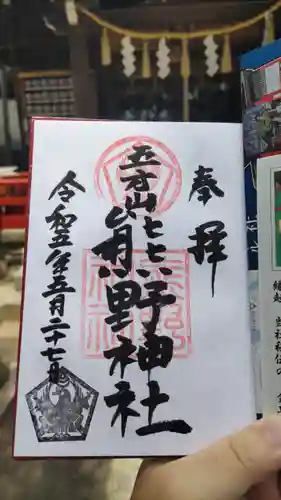 奉拝
五方山
熊野神社
令和五年五月二十七日